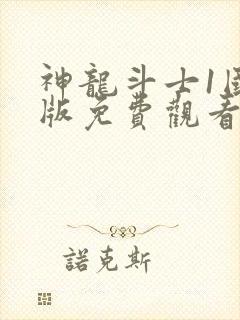 神龍斗士1国
版免費觀看
諾克斯